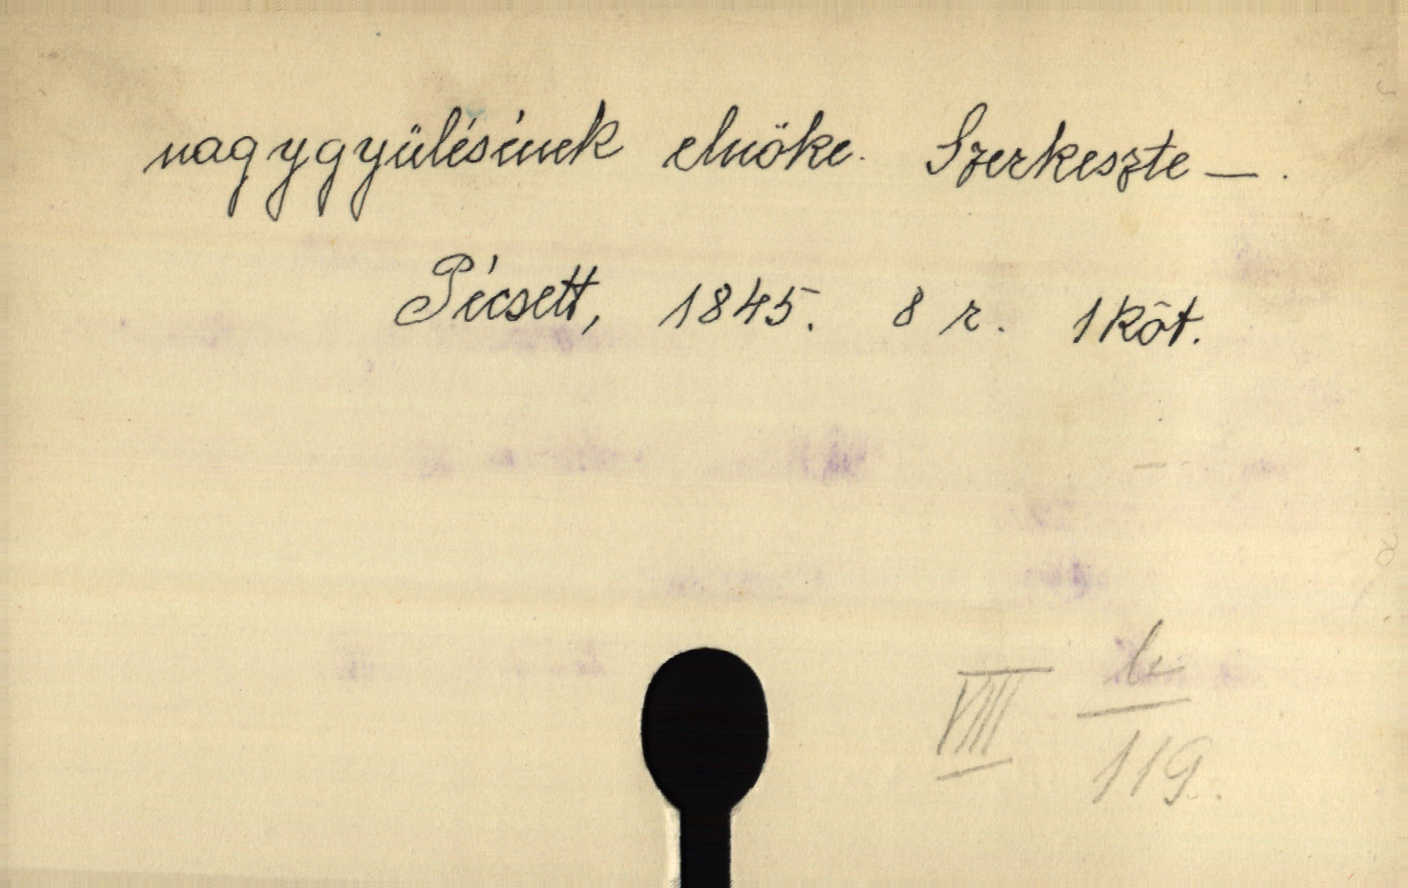 nagygyülésének elnöke. Szerkeszte —.
Pécsett, 1845. 8 r. 1 köt.
VIII b.
119.